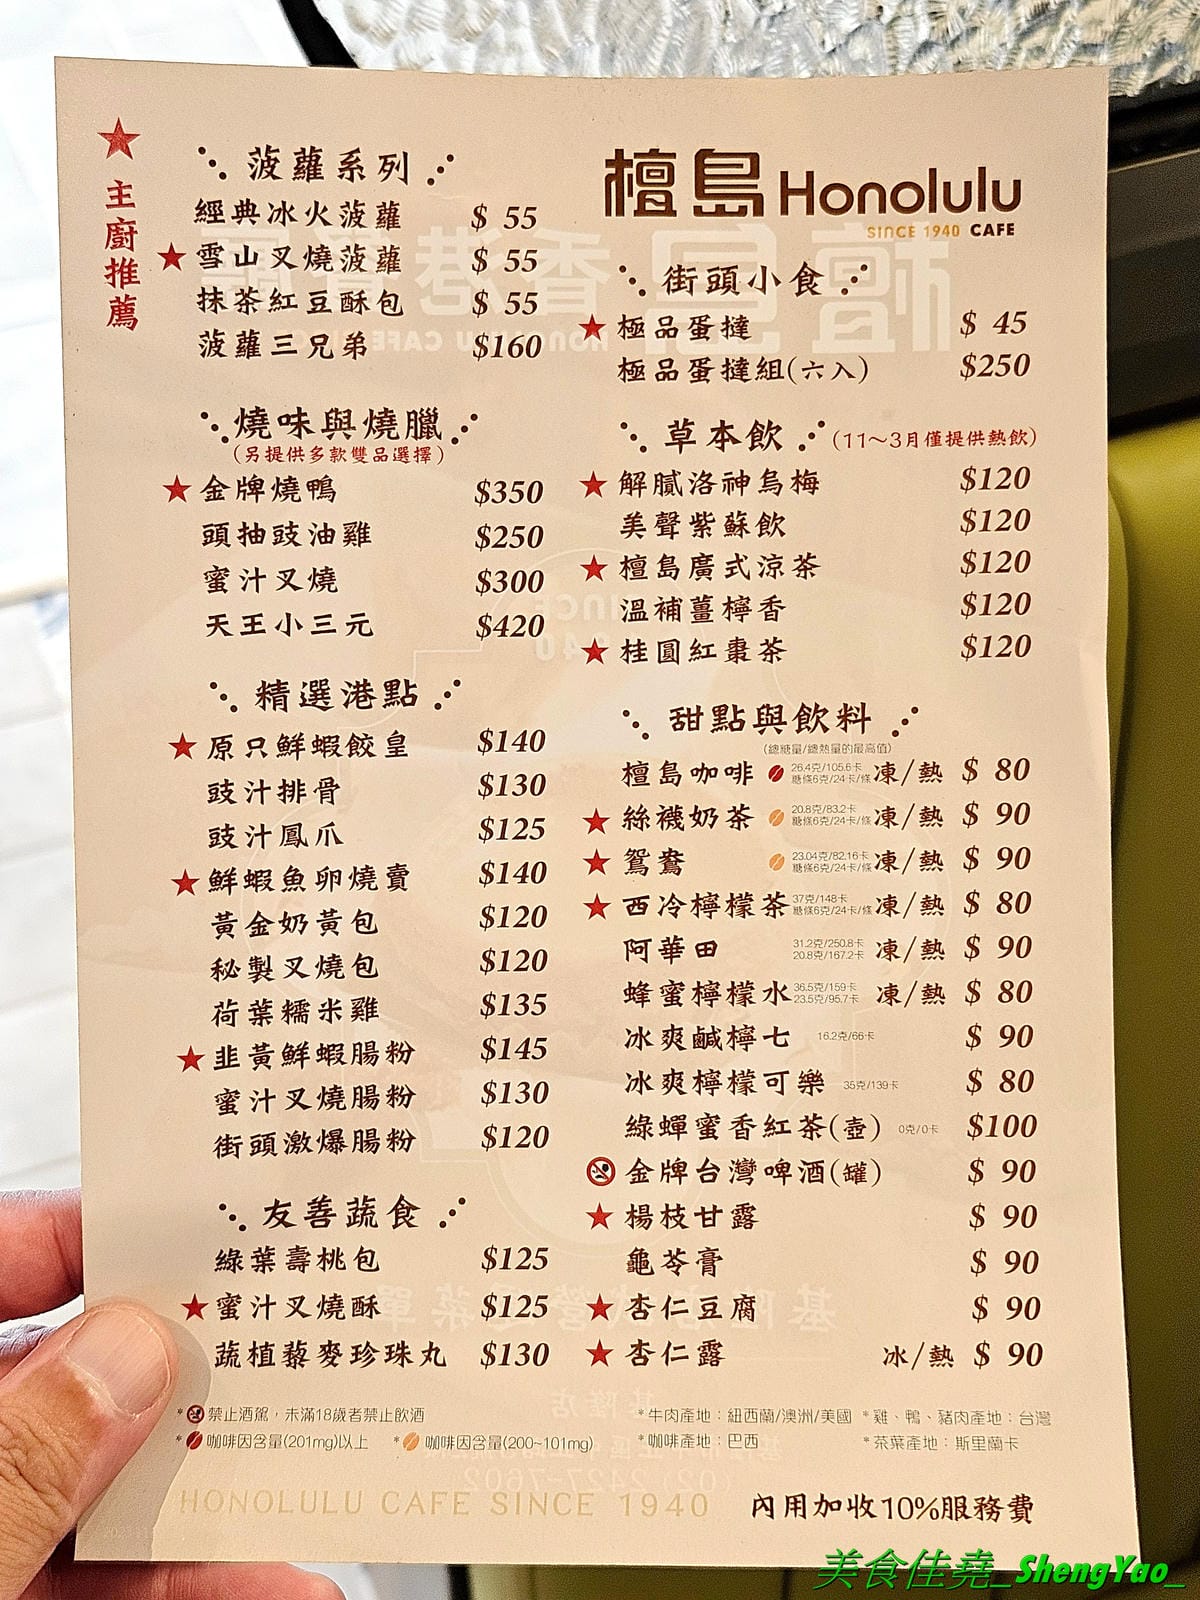 ★主廚推薦
菠蘿系列
經典冰火菠蘿 $ 55
★雪山叉燒菠蘿 $ 55
抹茶紅豆酥包 $ 55
菠蘿三兄弟 $160
燒味與燒臘
(另提供多款雙品選擇)
★金牌燒鴨 $350
頭抽豉油雞 $250
蜜汁叉燒 $300
天王小三元 $420
精選港點
★原只鮮蝦餃皇 $140
豉汁排骨 $130
豉汁鳳爪 $125
★鮮蝦魚卵燒賣 $140
黃金奶黃包 $120
秘製叉燒包 $120
荷葉糯米雞 $135
★韭黃鮮蝦腸粉 $145
蜜汁叉燒腸粉 $130
街頭激爆腸粉 $120
友善蔬食
綠葉壽桃包 $125
★蜜汁叉燒酥 $125
蔬植藜麥珍珠丸 $130
檀島 Honolulu
SINCE 1940 CAFE
街頭小食
★極品蛋撻 $ 45
極品蛋撻組(六入) $250
草本飲 (11~3月僅提供熱飲)
★解膩洛神烏梅 $120
美聲紫蘇飲 $120
★檀島廣式涼茶 $120
溫補薑檸香 $120
★桂圓紅棗茶 $120
甜點與飲料
(總糖量/總熱量的最高值)
檀島咖啡 26.4克/105.6卡 糖條6克/24卡/條 凍/熱 $ 80
★絲襪奶茶 20.8克/83.2卡 糖條6克/24卡/條 凍/熱 $ 90
★鴛鴦 23.04克/82.16卡 糖條6克/24卡/條 凍/熱 $ 90
★西冷檸檬茶 37克/148卡 糖條6克/24卡/條 凍/熱 $ 80
阿華田 31.2克/250.8卡 20.8克/167.2卡 凍/熱 $ 90
蜂蜜檸檬水 36.5克/159卡 23.5克/95.7卡 凍/熱 $ 80
冰爽鹹檸七 16.2克/66卡 $ 90
冰爽檸檬可樂 35克/139卡 $ 80
綠蟬蜜香紅茶(壺) 0克/0卡 $100
金牌台灣啤酒(罐) $ 90
★楊枝甘露 $ 90
龜苓膏 $ 90
★杏仁豆腐 $ 90
★杏仁露 冰/熱 $ 90
*禁止酒駕，未滿18歲者禁止飲酒
*咖啡因含量(201mg)以上 *咖啡因含量(200~101mg)
*牛肉產地：紐西蘭/澳洲/美國 *雞、鴨、豬肉產地：台灣
*咖啡產地：巴西 *茶葉產地：斯里蘭卡
HONOLULU CAFE SINCE 1940
內用加收10%服務費
美食佳堯_ShengYao_